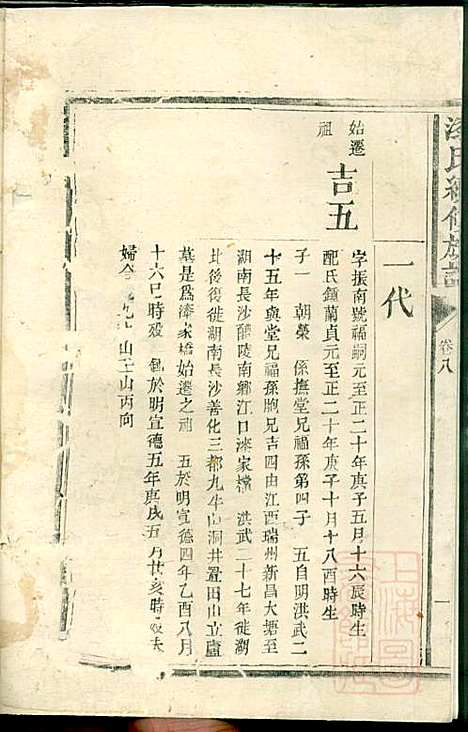 漆氏續修族譜
卷八
一
一代
始遷
祖
吉五
字振南號福嗣元至正二十年庚子五月十六辰時生
配氏鍾蘭貞元至正二十年庚子十月十八酉時生
子一 朝榮 係撫堂兄福孫第四子 五自明洪武二
十五年與堂兄福孫胞兄吉四由江西瑞州新昌大塘至
湖南長沙醴陵南鄉江口漆家橫 洪武二十七年徙湖
此後復徙湖南長沙善化三都九牛山洞井置田山立廬
墓是為漆家橋始遷之祖 五於明宣德四年乙酉八月
十六巳時歿 氏於明宣德五年庚戌五月廿亥時歿夫
婦合 九 山壬山丙向